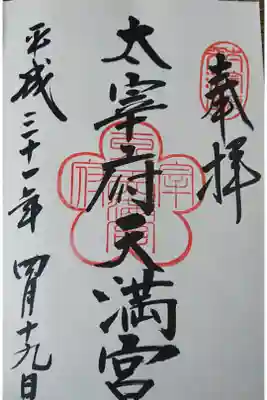 奉拝
太宰府天満宮
平成三十一年四月十九日